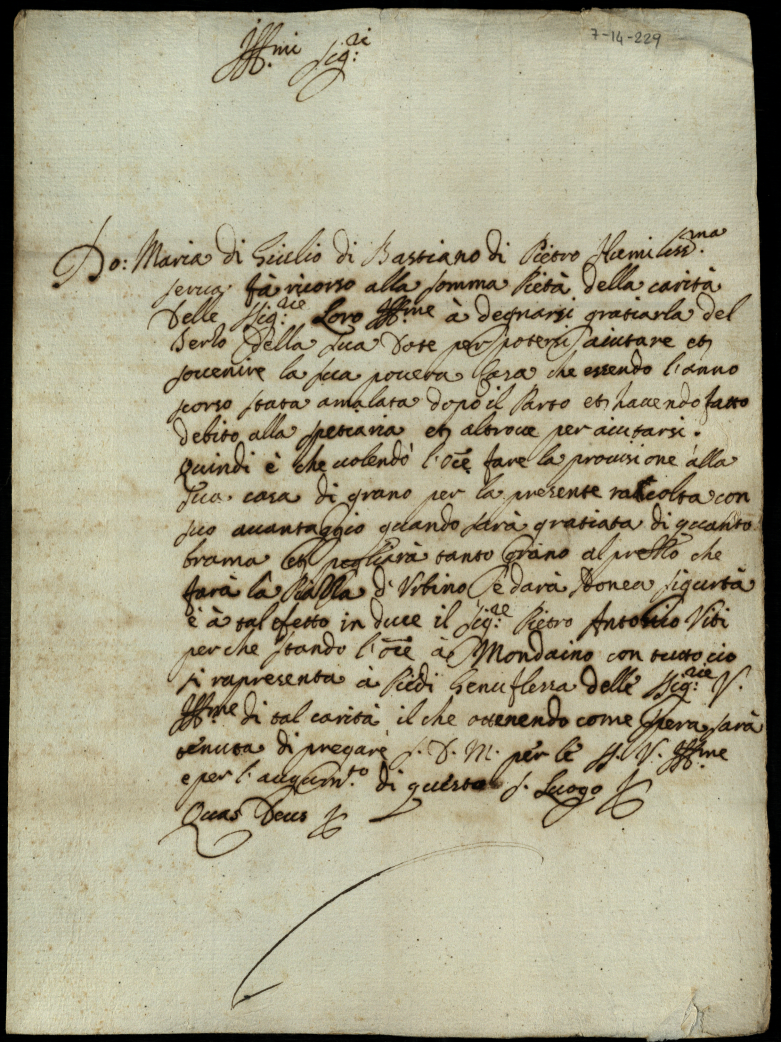 7-14-229
Ill.mi Sig.ri
Do: Maria di Giulio di Bastiano di Pietro Humiliss.ma
serva fà ricorso alla somma Pietà della carità
delle Sig.rie Loro Ill.me à degnarsi gratiarla del
della sua Dote per potersi aiutare et
sovenire la sua povera Casa che essendo l'anno
scorso stata amalata dopò il Parto et havendo fatto
debito alla spetiaria et altrove per aiutarsi.
Quindi è che volendo l'Oce fare la provisione alla
sua casa di grano per la presente raccolta con
suo avantaggio quando sarà gratiata di quanto
brama et pogliarà tanto Grano al prezzo che
farà la Piazza d'Urbino e darà Idonea sigurtà
è à tal efetto induce il Sig.re Pietro Antonio Viti
perche stando l'Oce à Mondaino con tutto ciò
si rapresenta à Piedi Genuflessa delle SSig.rie V.
Ill.me di tal carità il che ottenendo come spera sarà
tenuta di pregare S. D. M. per le SS. V. Ill.me
e per l'augum.to di questo S. Luogo
Quas Deus